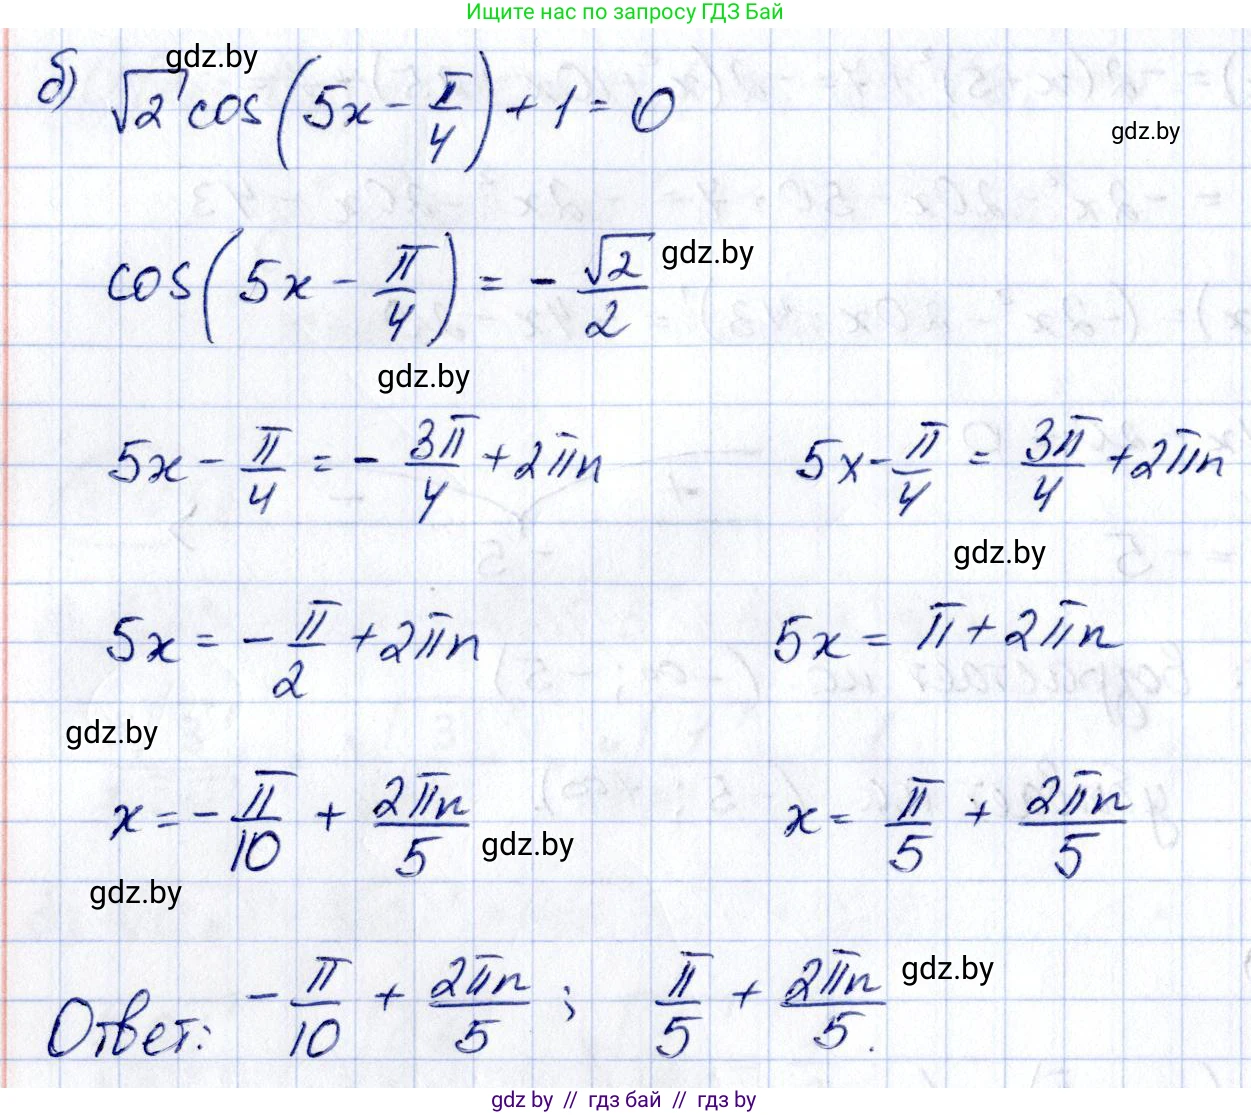 Ищите нас по запросу ГДЗ Бай
gdz.by
б) √2 cos(5x - π/4) + 1 = 0
gdz.by
cos(5x - π/4) = - √2/2
gdz.by
gdz.by
5x - π/4 = - 3π/4 + 2πn 5x - π/4 = 3π/4 + 2πn
gdz.by
5x = - π/2 + 2πn 5x = π + 2πn
gdz.by
x = - π/10 + 2πn/5 x = π/5 + 2πn/5
gdz.by
gdz.by
gdz.by
Ответ: - π/10 + 2πn/5 ; π/5 + 2πn/5.
gdz.by // гдз бай // гдз by